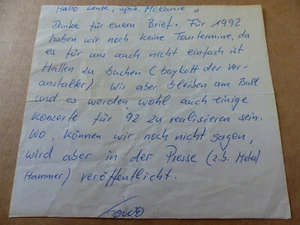 Hallo Leute, spez. Melanie,
Danke für euern Brief. Für 1992
haben wir noch keine Tourtermine, da
es für uns auch nicht einfach ist
Hallen zu buchen (boykott der Ver-
anstalter). Wir aber bleiben am Ball
und es werden wohl auch einige
Konzerte für 92 zu realisieren sein.
Wo, können wir noch nicht sagen,
wird aber in der Presse (z.B. Metal
Hammer) veröffentlicht.